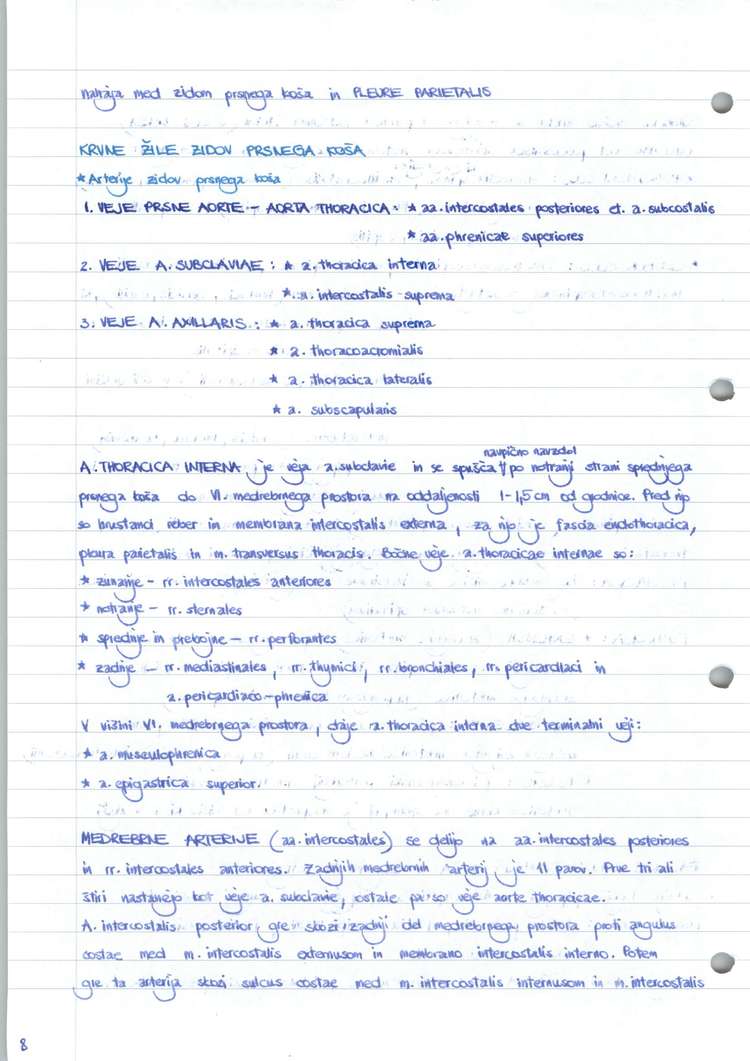 nahaja med zidom prsnega koša in PLEURE PARIETALIS
KRVNE ŽILE ZIDOV PRSNEGA KOŠA
* Arterije zidov prsnega koša
1. VEJE PRSNE AORTE - AORTA THORACICA: * aa. intercostales posteriores et. a. subcostalis
* aa. phrenicae superiores
2. VEJE A. SUBCLAVIAE: * a. thoracica interna
* a. intercostalis suprema
3. VEJE A. AXILLARIS: * a. thoracica suprema
* a. thoracoacromialis
* a. thoracica lateralis
* a. subscapularis
navpično navzdol
A. THORACICA INTERNA je veja a. subclavie in se spušča po notranji strani sprednjega
prsnega koša do VI. medrebrnega prostora na oddaljenosti 1-1,5 cm od grodnice. Pred njo
so hrustanci reber in membrana intercostalis externa, za njo je fascia endothoracica,
pleura parietalis in m. transversus thoracis. Bočne veje a. thoracicae internae so:
* zunanje - rr. intercostales anteriores
* notranje - rr. sternales
* sprednje in prebojne - rr. perforantes
* zadnje - rr. mediastinales, rr. thymici, rr. bronchiales, rr. pericardiaci in
a. pericardiaco-phrenica
V višini VI. medrebrnega prostora, daje a. thoracica interna dve terminalni veji:
* a. musculophrenica
* a. epigastrica superior.
MEDREBRNE ARTERIJE (aa. intercostales) se delijo na aa. intercostales posteriores
in rr. intercostales anteriores. Zadnjih medrebrnih arterij je 11 parov. Prve tri ali
štiri nastanejo kot veje a. subclavie, ostale pa so veje aorte thoracicae.
A. intercostalis posterior gre skozi zadnji del medrebrnega prostora proti angulus
costae med m. intercostalis externusom in membrano intercostalis interno. Potem
gre ta arterija skozi sulcus costae med m. intercostalis internusom in m. intercostalis
8